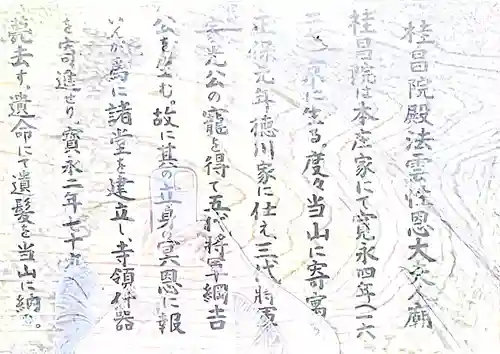 桂昌院殿法雲性恩大夫人廟
桂昌院は本庄家にて寛永四年(一六
二七)京に生る。度々当山に寄寓
正保元年徳川家に仕え三代将軍
家光公の寵を得て五代将軍綱吉
公を生む。故に其の立身の冥恩に報
いんが為に諸堂を建立し、寺領什器
を寄進せり。寳永二年七十九
薨去す。遺命にて遺髪を当山に納む。